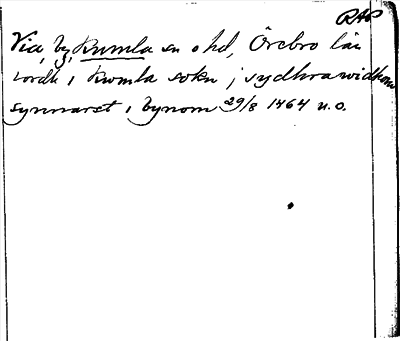 RAP
Via, by, Kumla sn o hd, Örebro län
iordh i Kwmla sokn j sydhrawidhom
synnarst i bynom 29/8 1464 u.o.